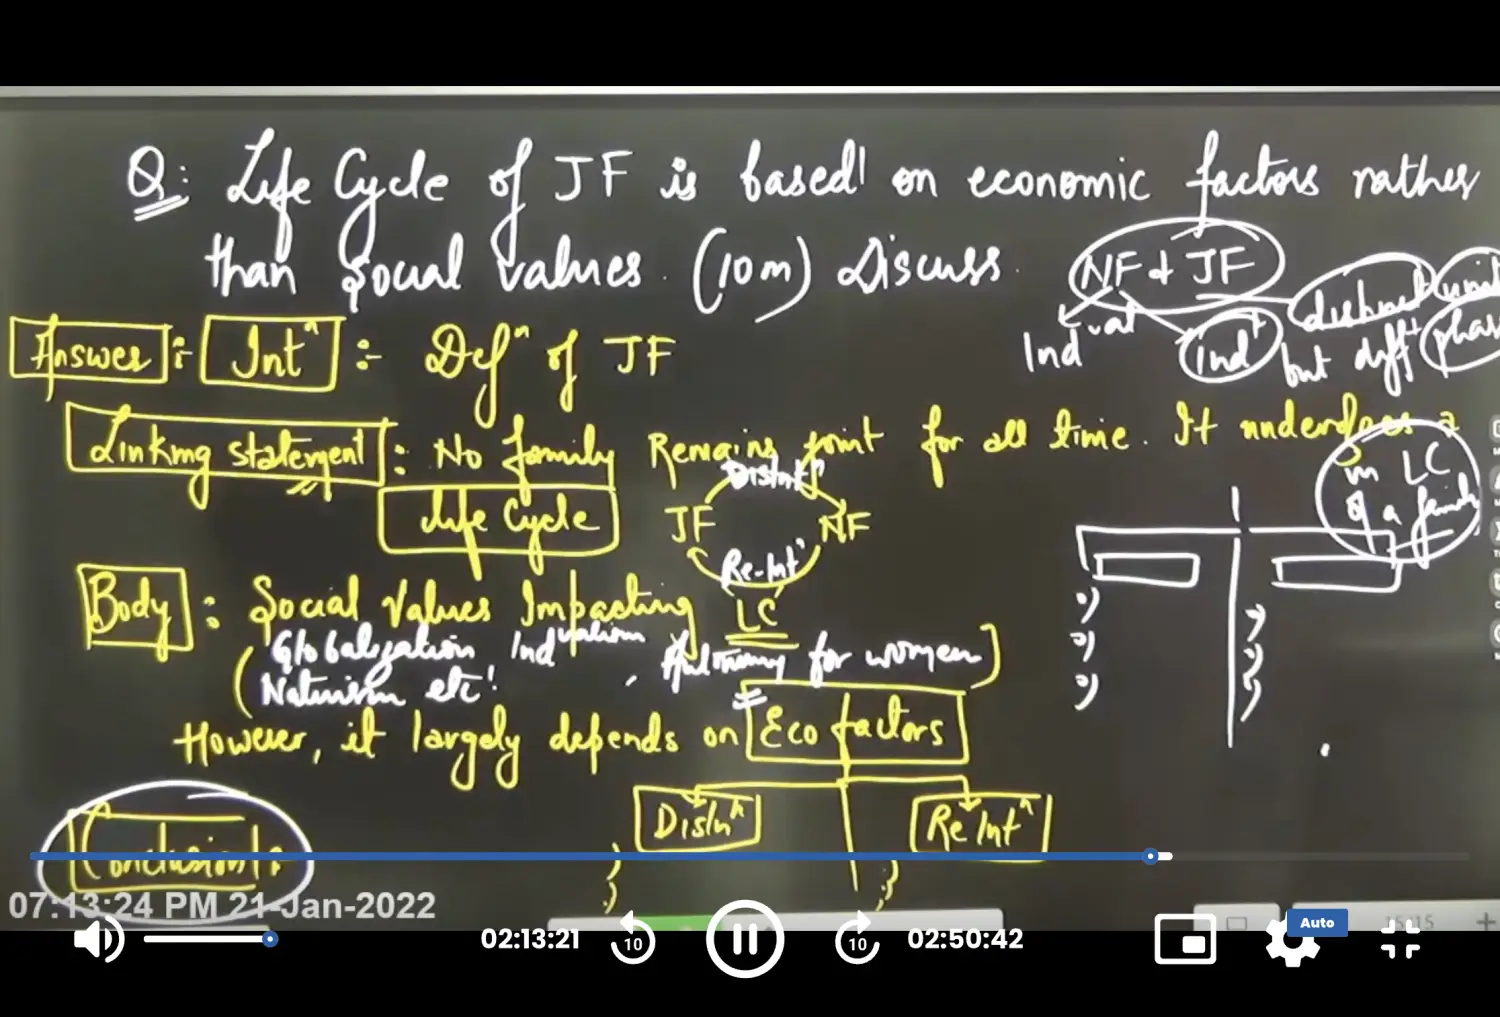 Q: Life Cycle of JF is based on economic factors rather
than Social Values. (10m) Discuss.
NF & JF
Ind^ual
ind^t
distinct unit
but diff^t phase
Answer :- Int^n :- Def^n of JF
Linking statement : No family Remains joint for all time. It undergoes a
Life Cycle
Disint^n
JF NF
Re-Int^n
LC
in LC
of a family
Body : Social Values Impacting
(Globalization Ind^ualism, Autonomy for women)
etc.
However, it largely depends on Eco factors
DisIn^n
Re Int^n
Conclusion :
07:13:24 PM 21-Jan-2022
02:13:21 10 10 02:50:42
Auto
15/15